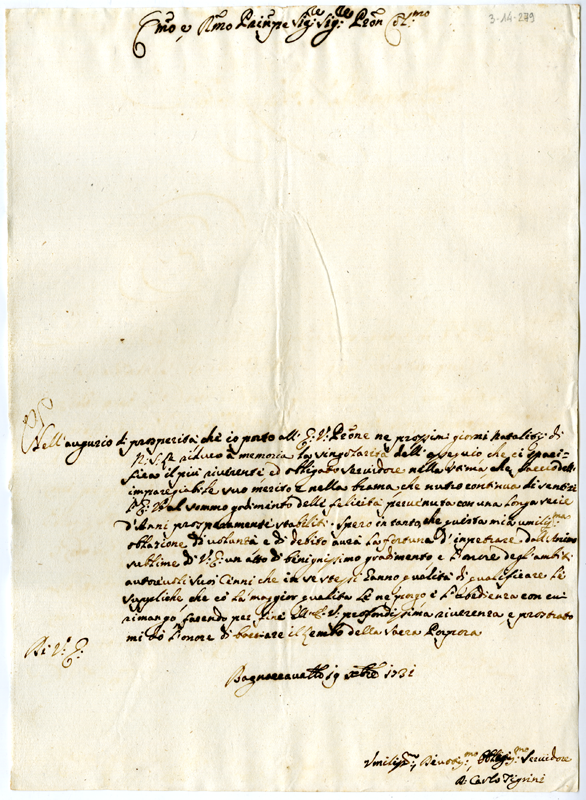 3-14-279
E.mo e R.mo Principe Sig.re Sig.re P̃rone Col.mo
Nell'augurio di prosperità che io porto all' E. V. P̃rone ne prossimi giorni natalizj di
N. S. riduco à memoria la singolarità dell'ossequio che
il più riverente ed obligato servidore nella stima che
impareggiabile suo merito e nella brama che nutro continua di sentire
l' E. V. al sommo godimento delle felicità pervenuta con una longa serie
d'Anni prosperamente stabiliti. Spero in tanto che questa mia umiliss.ma
oblazione di volontà e di debito avrà la fortuna d'impetrare dall'Animo
sublime di V. E. un atto di benignissimo gradimento e l'onore degl'ambiti
autorevoli suoi Cenni che in se stessi hanno qualità di qualificare le
suppliche che co la maggior qualità Le ne porgo e l'obedienza con cui
rimango, facendo per fine all' E. V. profondissima riverenza e prostrato
mi dò l'onore di bacciare il Lembo della Sacra Porpora
Di V. E.
Bagnacavallo 19 xbre 1731
Umiliss.mo, Devotis.mo, Obligm.o Servidore
D. Carlo Tigrini